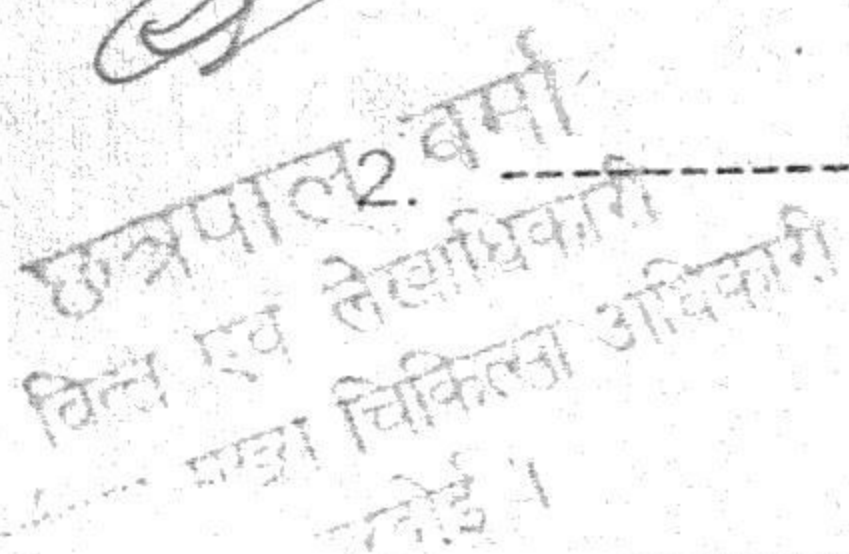 छत्रपाल वर्मा
2.
वित्त एवं लेखाधिकारी
चिकित्सा अधिकारी